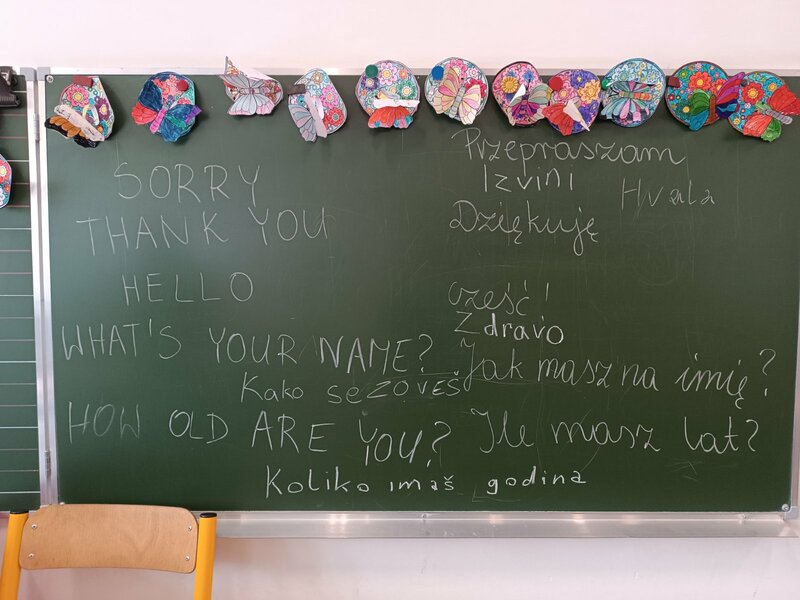 SORRY
Przepraszam
Izvini
Hvala
THANK YOU
Dziękuję
HELLO
cześć!
Zdravo
WHAT'S YOUR NAME?
Jak masz na imię?
Kako se zoveš
HOW OLD ARE YOU?
Ile masz lat?
Koliko imaš godina